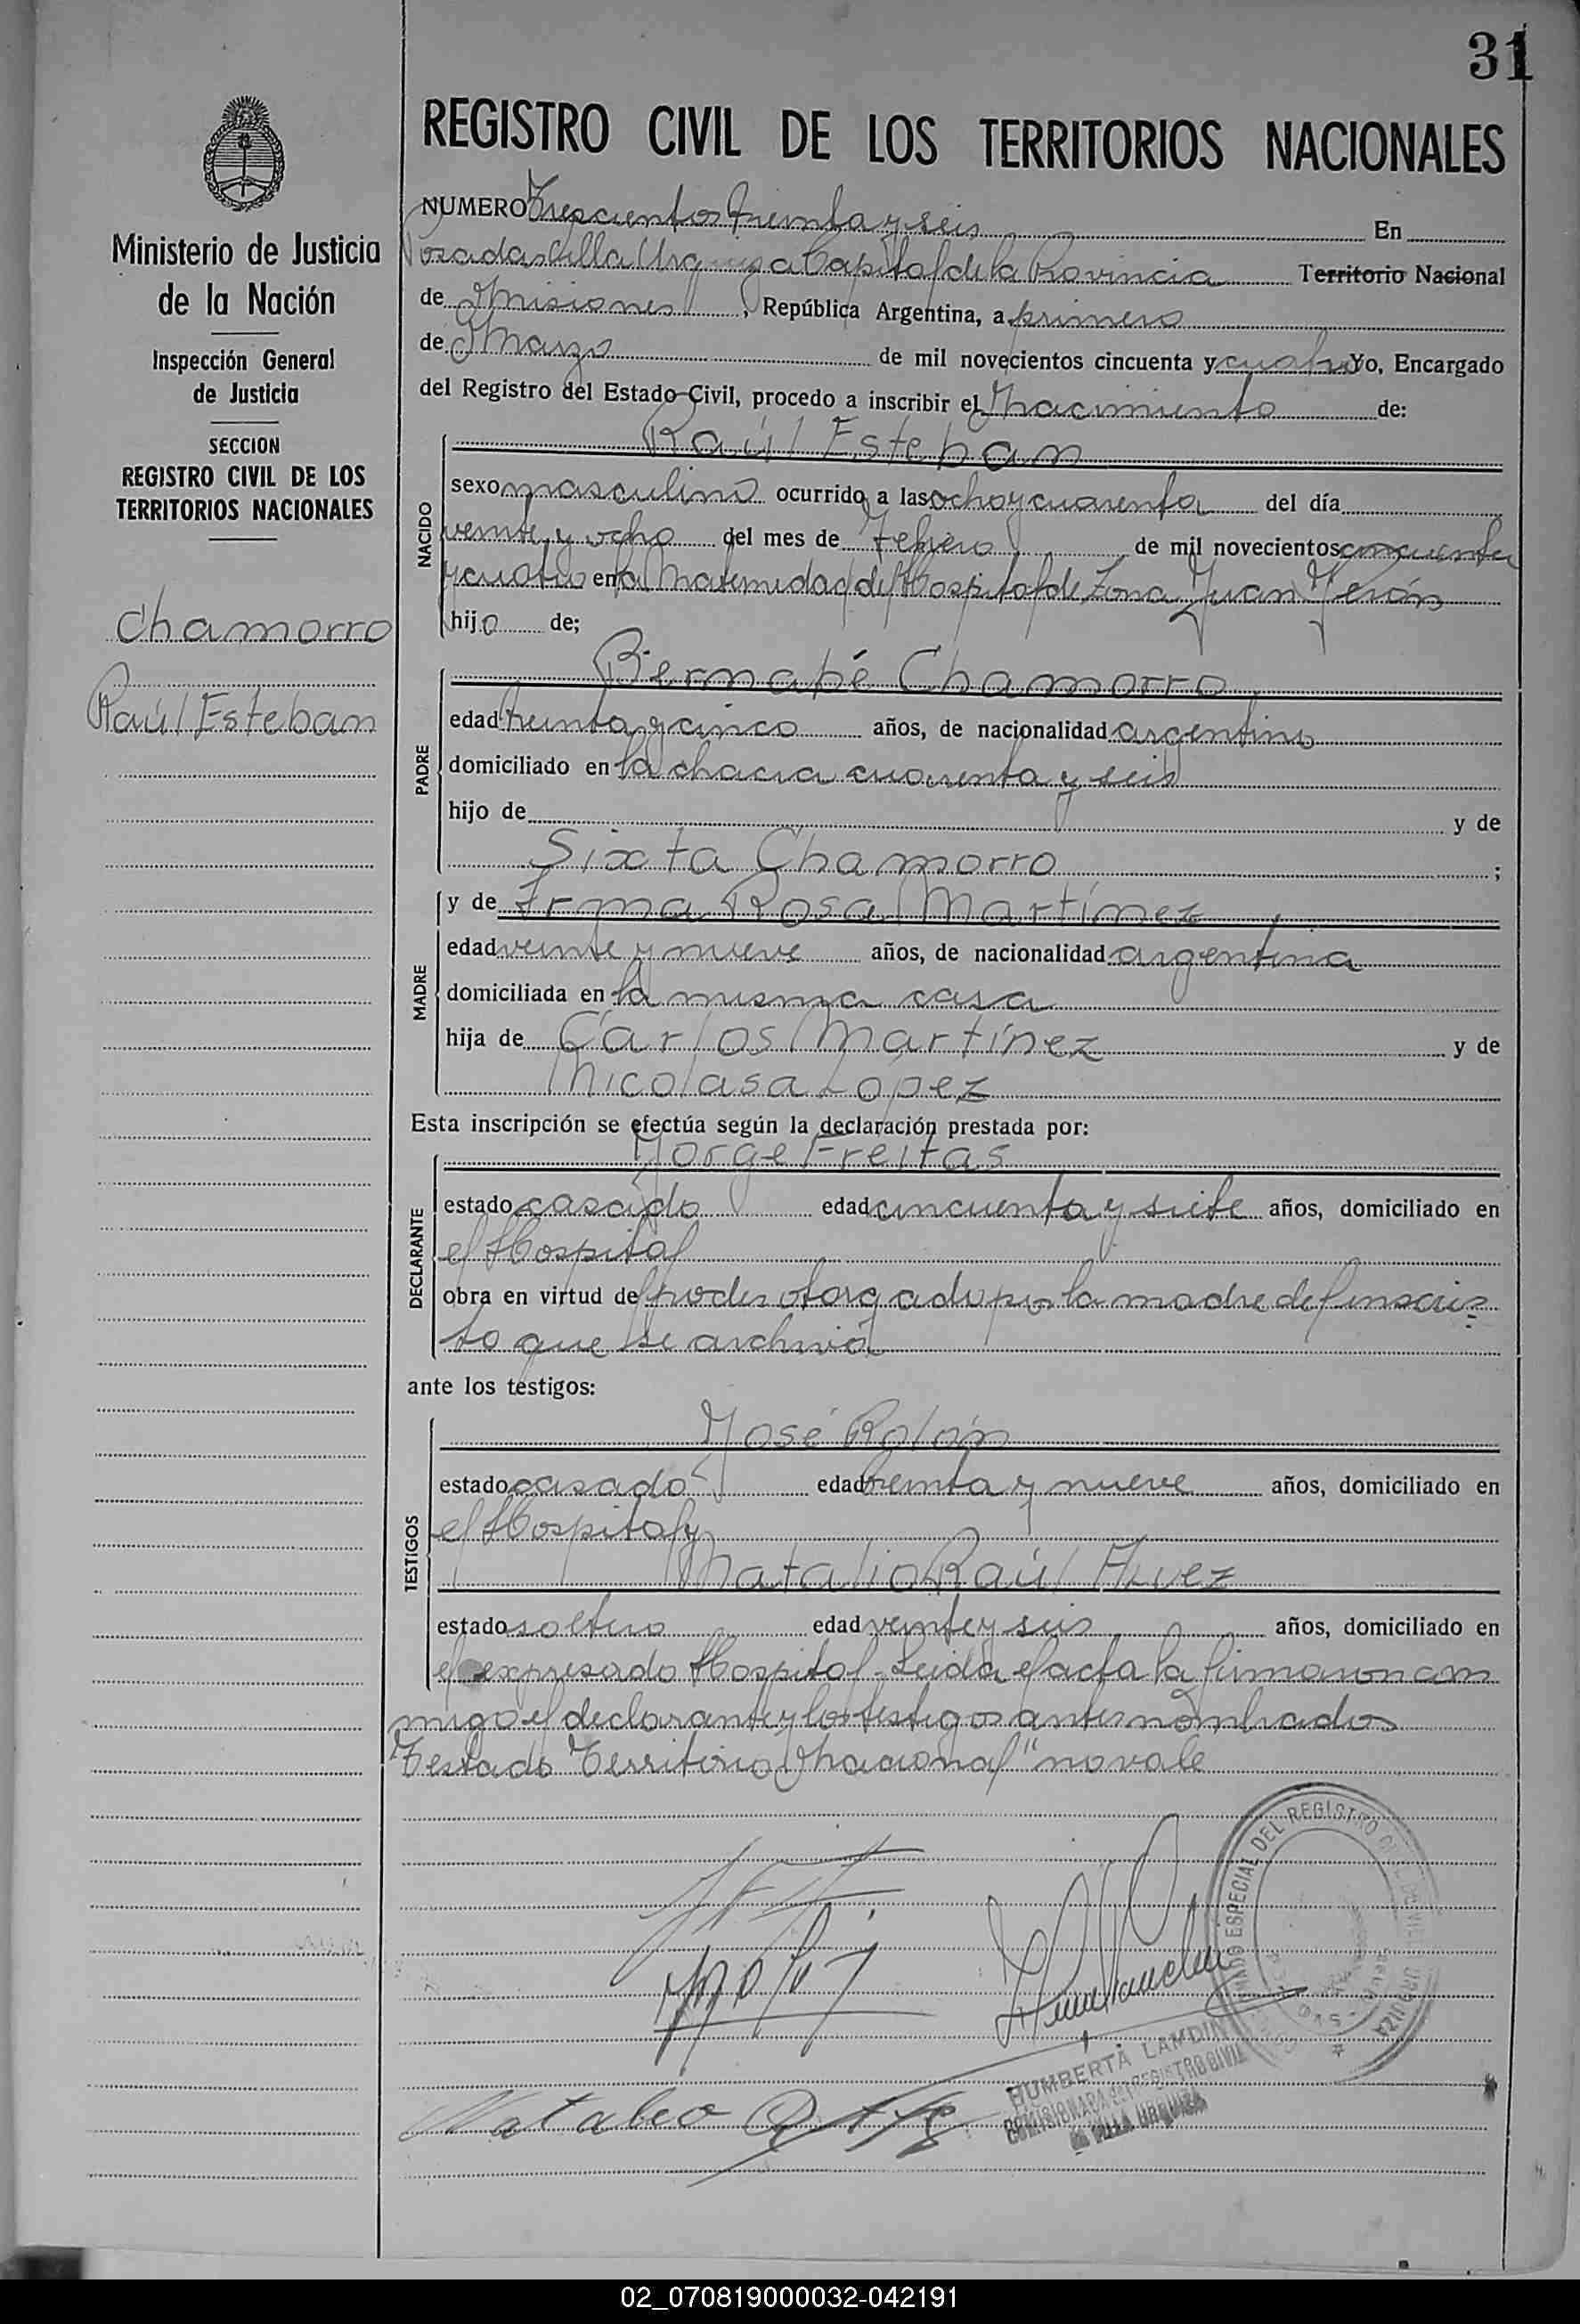 31
REGISTRO CIVIL DE LOS TERRITORIOS NACIONALES
Ministerio de Justicia
de la Nación
Inspección General
de Justicia
SECCION
REGISTRO CIVIL DE LOS
TERRITORIOS NACIONALES
Chamorro
Raúl Esteban
NUMERO Trescientos treinta y seis En
Posadas Villa Urquiza Capital de la Provincia Territorio Nacional
de Misiones, República Argentina, a primero
de Marzo de mil novecientos cincuenta y cuatro Yo, Encargado
del Registro del Estado Civil, procedo a inscribir el Nacimiento de:
Raúl Esteban
NACIDO
sexo masculino ocurrido a las ocho y cuarenta del día
veinte y ocho del mes de Febrero de mil novecientos cincuenta
y cuatro en la Maternidad del Hospital de Zona Juan Perón
hijo de;
Bernabé Chamorro
PADRE
edad treinta y cinco años, de nacionalidad argentino
domiciliado en la chacra cuarenta y seis
hijo de y de
Sixta Chamorro ;
MADRE
y de Irma Rosa Martínez
edad veinte y nueve años, de nacionalidad argentina
domiciliada en la misma casa
hija de Carlos Martínez y de
Nicolasa López
Esta inscripción se efectúa según la declaración prestada por:
Jorge Freitas
DECLARANTE
estado casado edad cincuenta y siete años, domiciliado en
el Hospital
obra en virtud de poder otorgado por la madre del inscrip
to que se archiva
ante los testigos:
José Rolón
TESTIGOS
estado casado edad treinta y nueve años, domiciliado en
el Hospital y
Natalio Raúl Alvez
estado soltero edad veinte y seis años, domiciliado en
el expresado Hospital. Leida el acta la firmaron con
migo el declarante y los testigos antes nombrados
Testado "Territorio Nacional" no vale
ESPECIAL DEL REGISTRO
URQUIZA
HUMBERTA LAMDIN
COMISIONADA del REGISTRO CIVIL
de VILLA URQUIZA
02_070819000032-042191